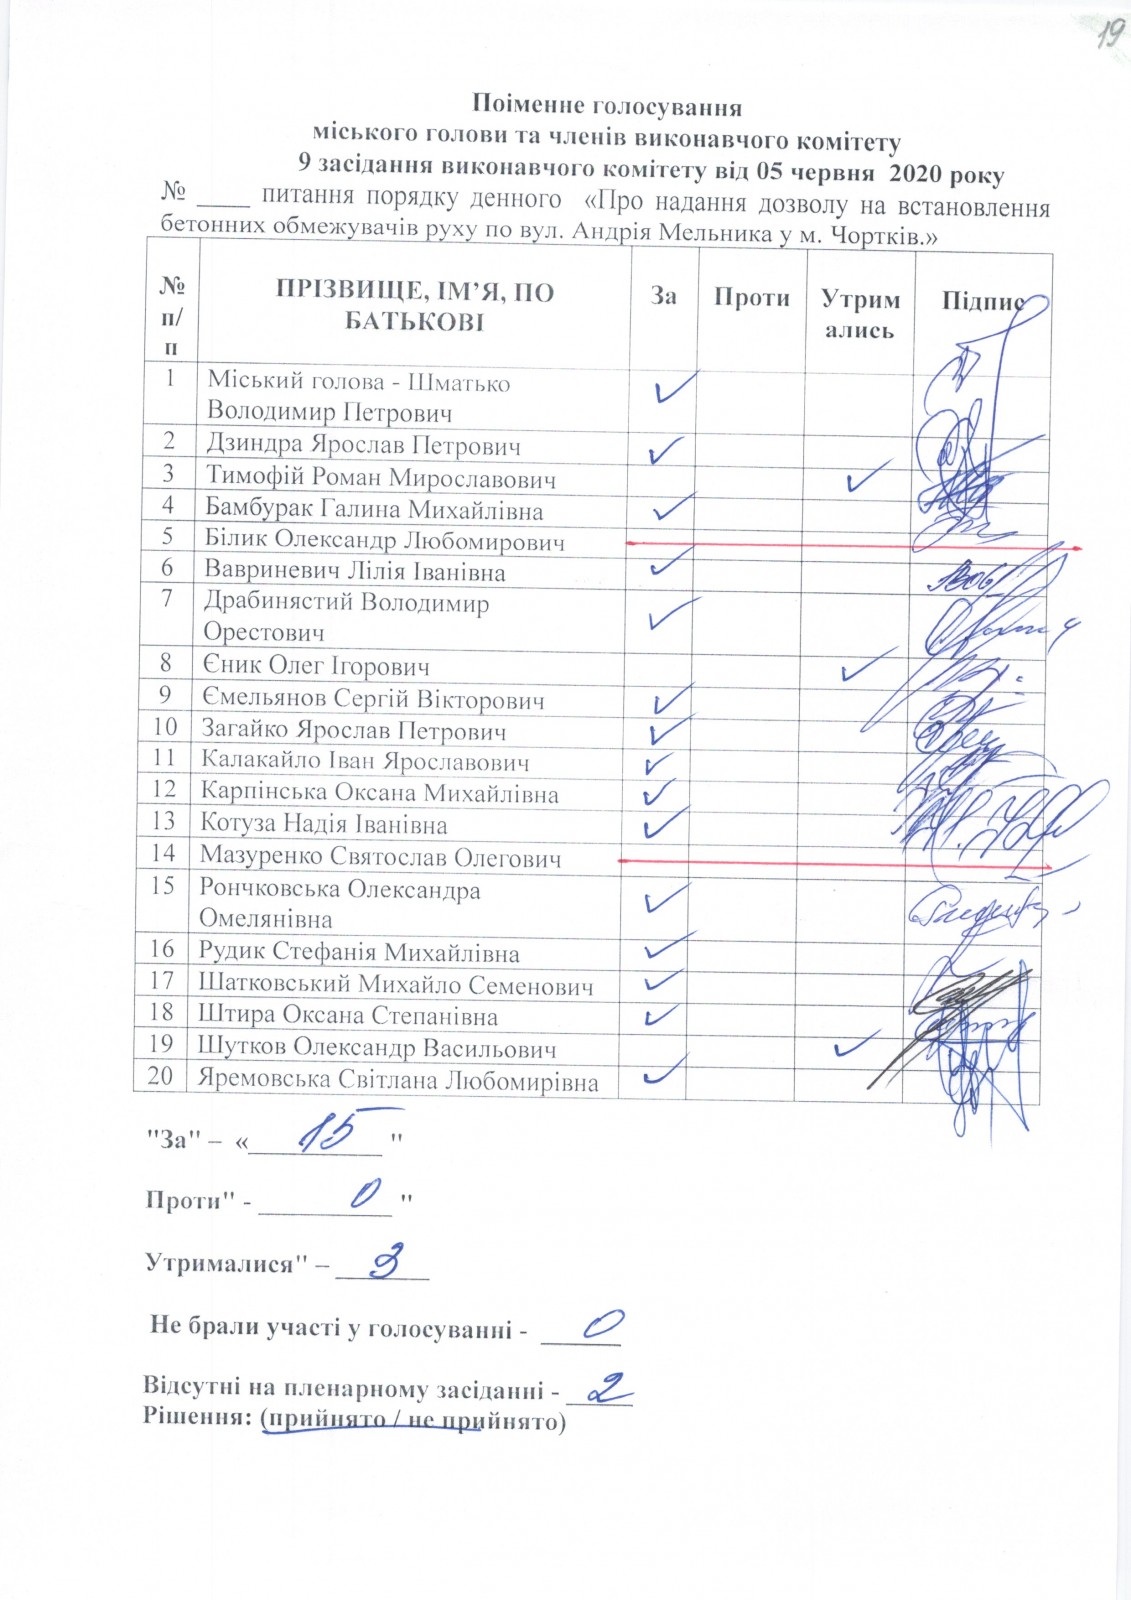 19
Поіменне голосування
міського голови та членів виконавчого комітету
9 засідання виконавчого комітету від 05 червня 2020 року
№ ____ питання порядку денного «Про надання дозволу на встановлення
бетонних обмежувачів руху по вул. Андрія Мельника у м. Чортків.»
№ п/п ПРІЗВИЩЕ, ІМ’Я, ПО БАТЬКОВІ За Проти Утрим ались Підпис
1 Міський голова - Шматько
Володимир Петрович ✓
2 Дзиндра Ярослав Петрович ✓
3 Тимофій Роман Мирославович ✓
4 Бамбурак Галина Михайлівна ✓
5 Білик Олександр Любомирович
6 Вавриневич Лілія Іванівна ✓
7 Драбинястий Володимир
Орестович ✓
8 Єник Олег Ігорович ✓
9 Ємельянов Сергій Вікторович ✓
10 Загайко Ярослав Петрович ✓
11 Калакайло Іван Ярославович ✓
12 Карпінська Оксана Михайлівна ✓
13 Котуза Надія Іванівна ✓
14 Мазуренко Святослав Олегович
15 Рончковська Олександра
Омелянівна ✓
16 Рудик Стефанія Михайлівна ✓
17 Шатковський Михайло Семенович ✓
18 Штира Оксана Степанівна ✓
19 Шутков Олександр Васильович ✓
20 Яремовська Світлана Любомирівна ✓
"За" – « 15 "
Проти" - 0 "
Утрималися" – 3
Не брали участі у голосуванні - 0
Відсутні на пленарному засіданні - 2
Рішення: (прийнято / не прийнято)